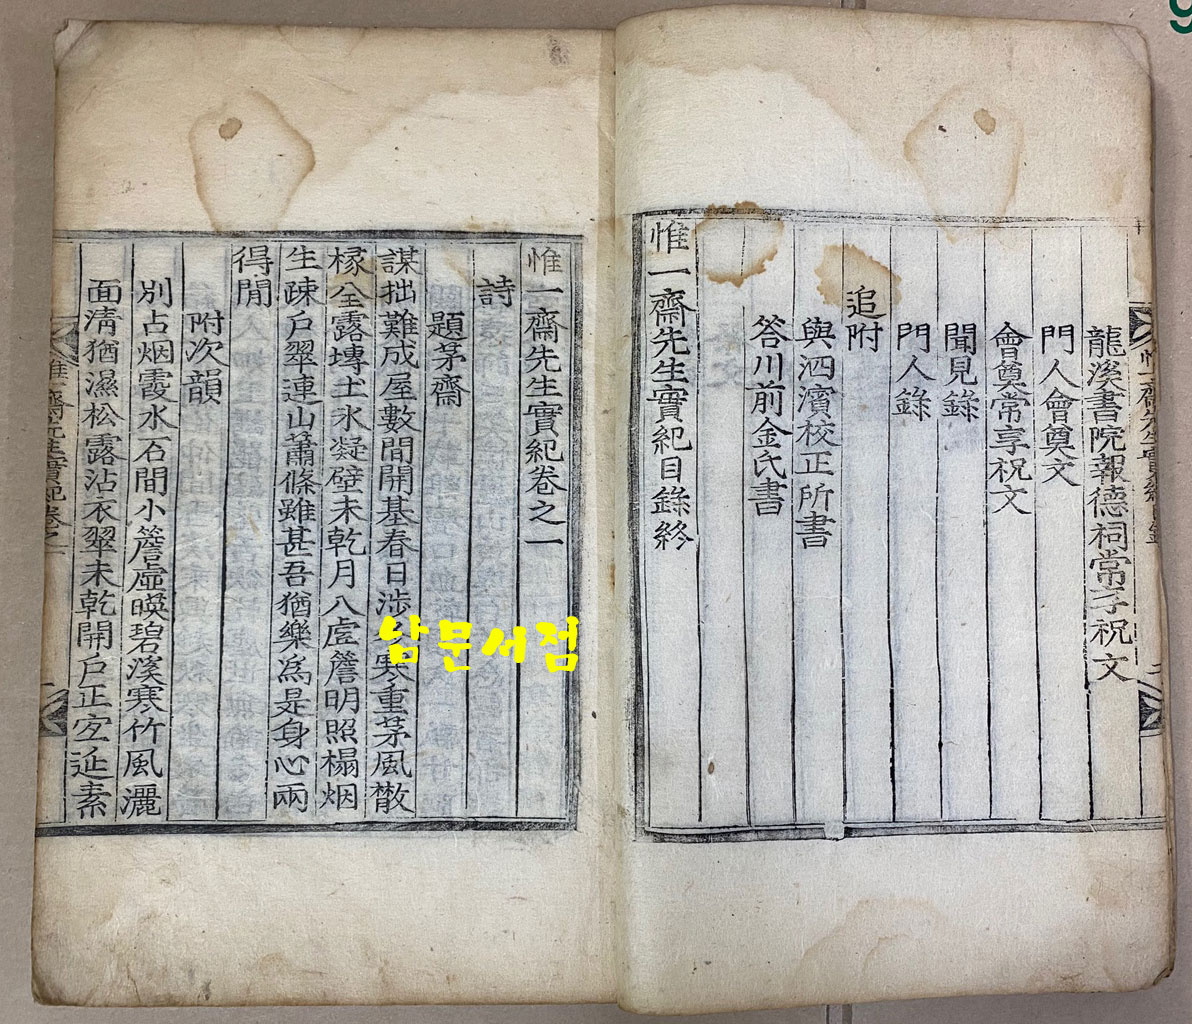 龍溪書院報德祠常享祝文
門人會奠文
會奠常享祝文
聞見錄
門人錄
追附
與泗濱校正所書
答川前金氏書
惟一齋先生實紀目錄終
惟一齋先生實紀卷之一
詩
題茅齋
謀拙難成屋數間開基春日涉冬寒重茅風散
椽全露塼土氷凝壁未乾月入虛簷明照榻烟
生疎戶翠連山蕭條雖甚吾猶樂爲是身心兩
得閒
附次韻
別占烟霞水石間小簷虛暎碧溪寒竹風灑
面淸猶濕松露沾衣翠未乾開戶正宜延素
惟一齋先生實紀卷之一
남문서점